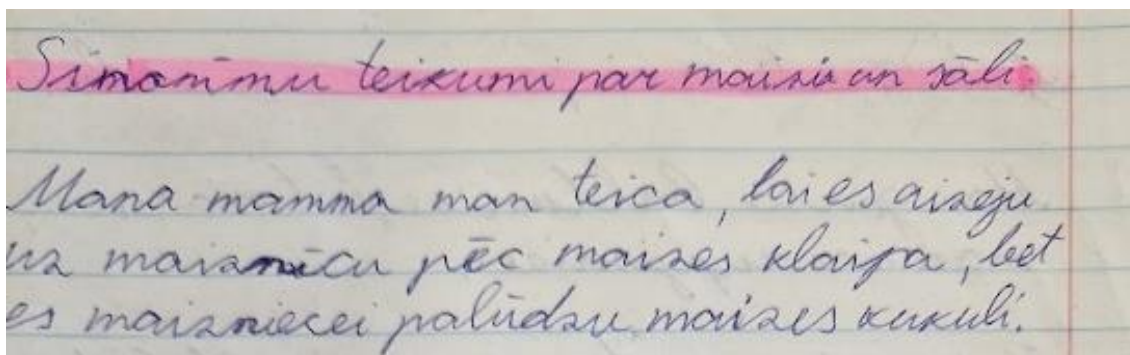 Sinonīmu teikumi par maizi un sāli.
Mana mamma man teica, lai es aizeju
uz maiznīcu pēc maizes klaipa, bet
es maizniecei palūdzu maizes kukuli.